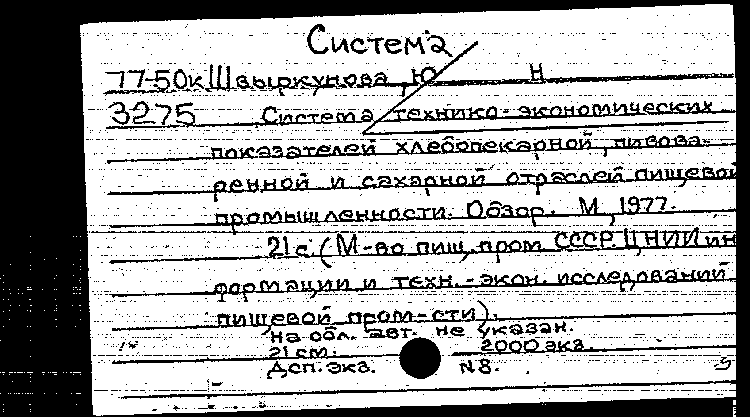 Система
77-50к Швыркунова, Ю Н
3275 Система технико-экономических
показателей хлебопекарной, пивова-
ренной и сахарной отраслей пищевой
промышленности. Обзор. М, 1977.
21с. (М-во пищ, пром СССР ЦНИИ ин
формации и техн.-экон. исследований
пищевой пром-сти).
На обл. авт. не указан.
21 см. 2000 экз.
Дсп. экз. N8.